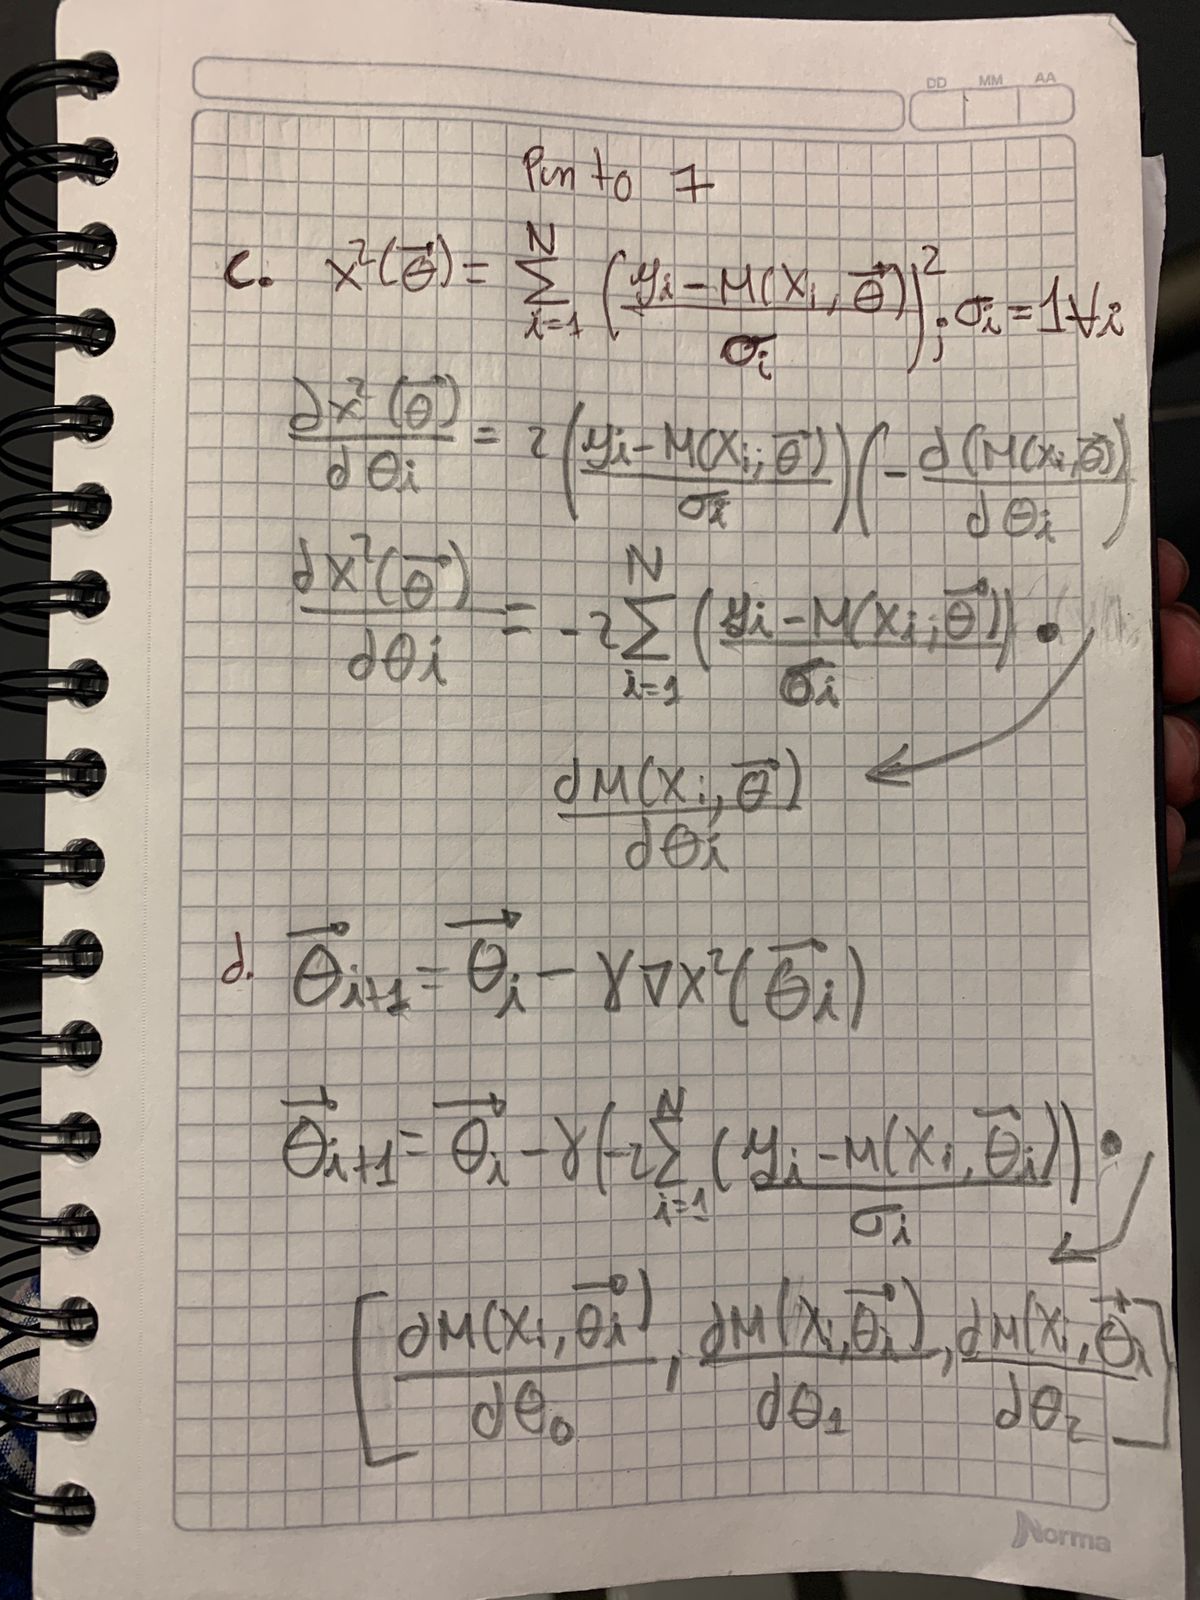 DD MM AA
Punto 7
c. χ²(θ⃗) = Σ_{i=1}^{N} ((yi − M(xi, θ⃗))/σi)²; σi = 1 ∀i
dχ²(θ⃗)/dθi = 2 ((yi − M(xi; θ⃗))/σi) (− d(M(xi, θ⃗))/dθi)
dχ²(θ⃗)/dθi = −2 Σ_{i=1}^{N} ((yi − M(xi; θ⃗))/σi) •
dM(xi, θ⃗)/dθi
d. θ⃗i+1 = θ⃗i − γ∇χ²(θ⃗i)
θ⃗i+1 = θ⃗i − γ(−2 Σ_{i=1}^{N} (yi − M(xi, θ⃗i))/σi) •
[dM(xi, θ⃗i)/dθ0, dM(xi, θ⃗i)/dθ1, dM(xi, θ⃗i/dθ2]
Norma